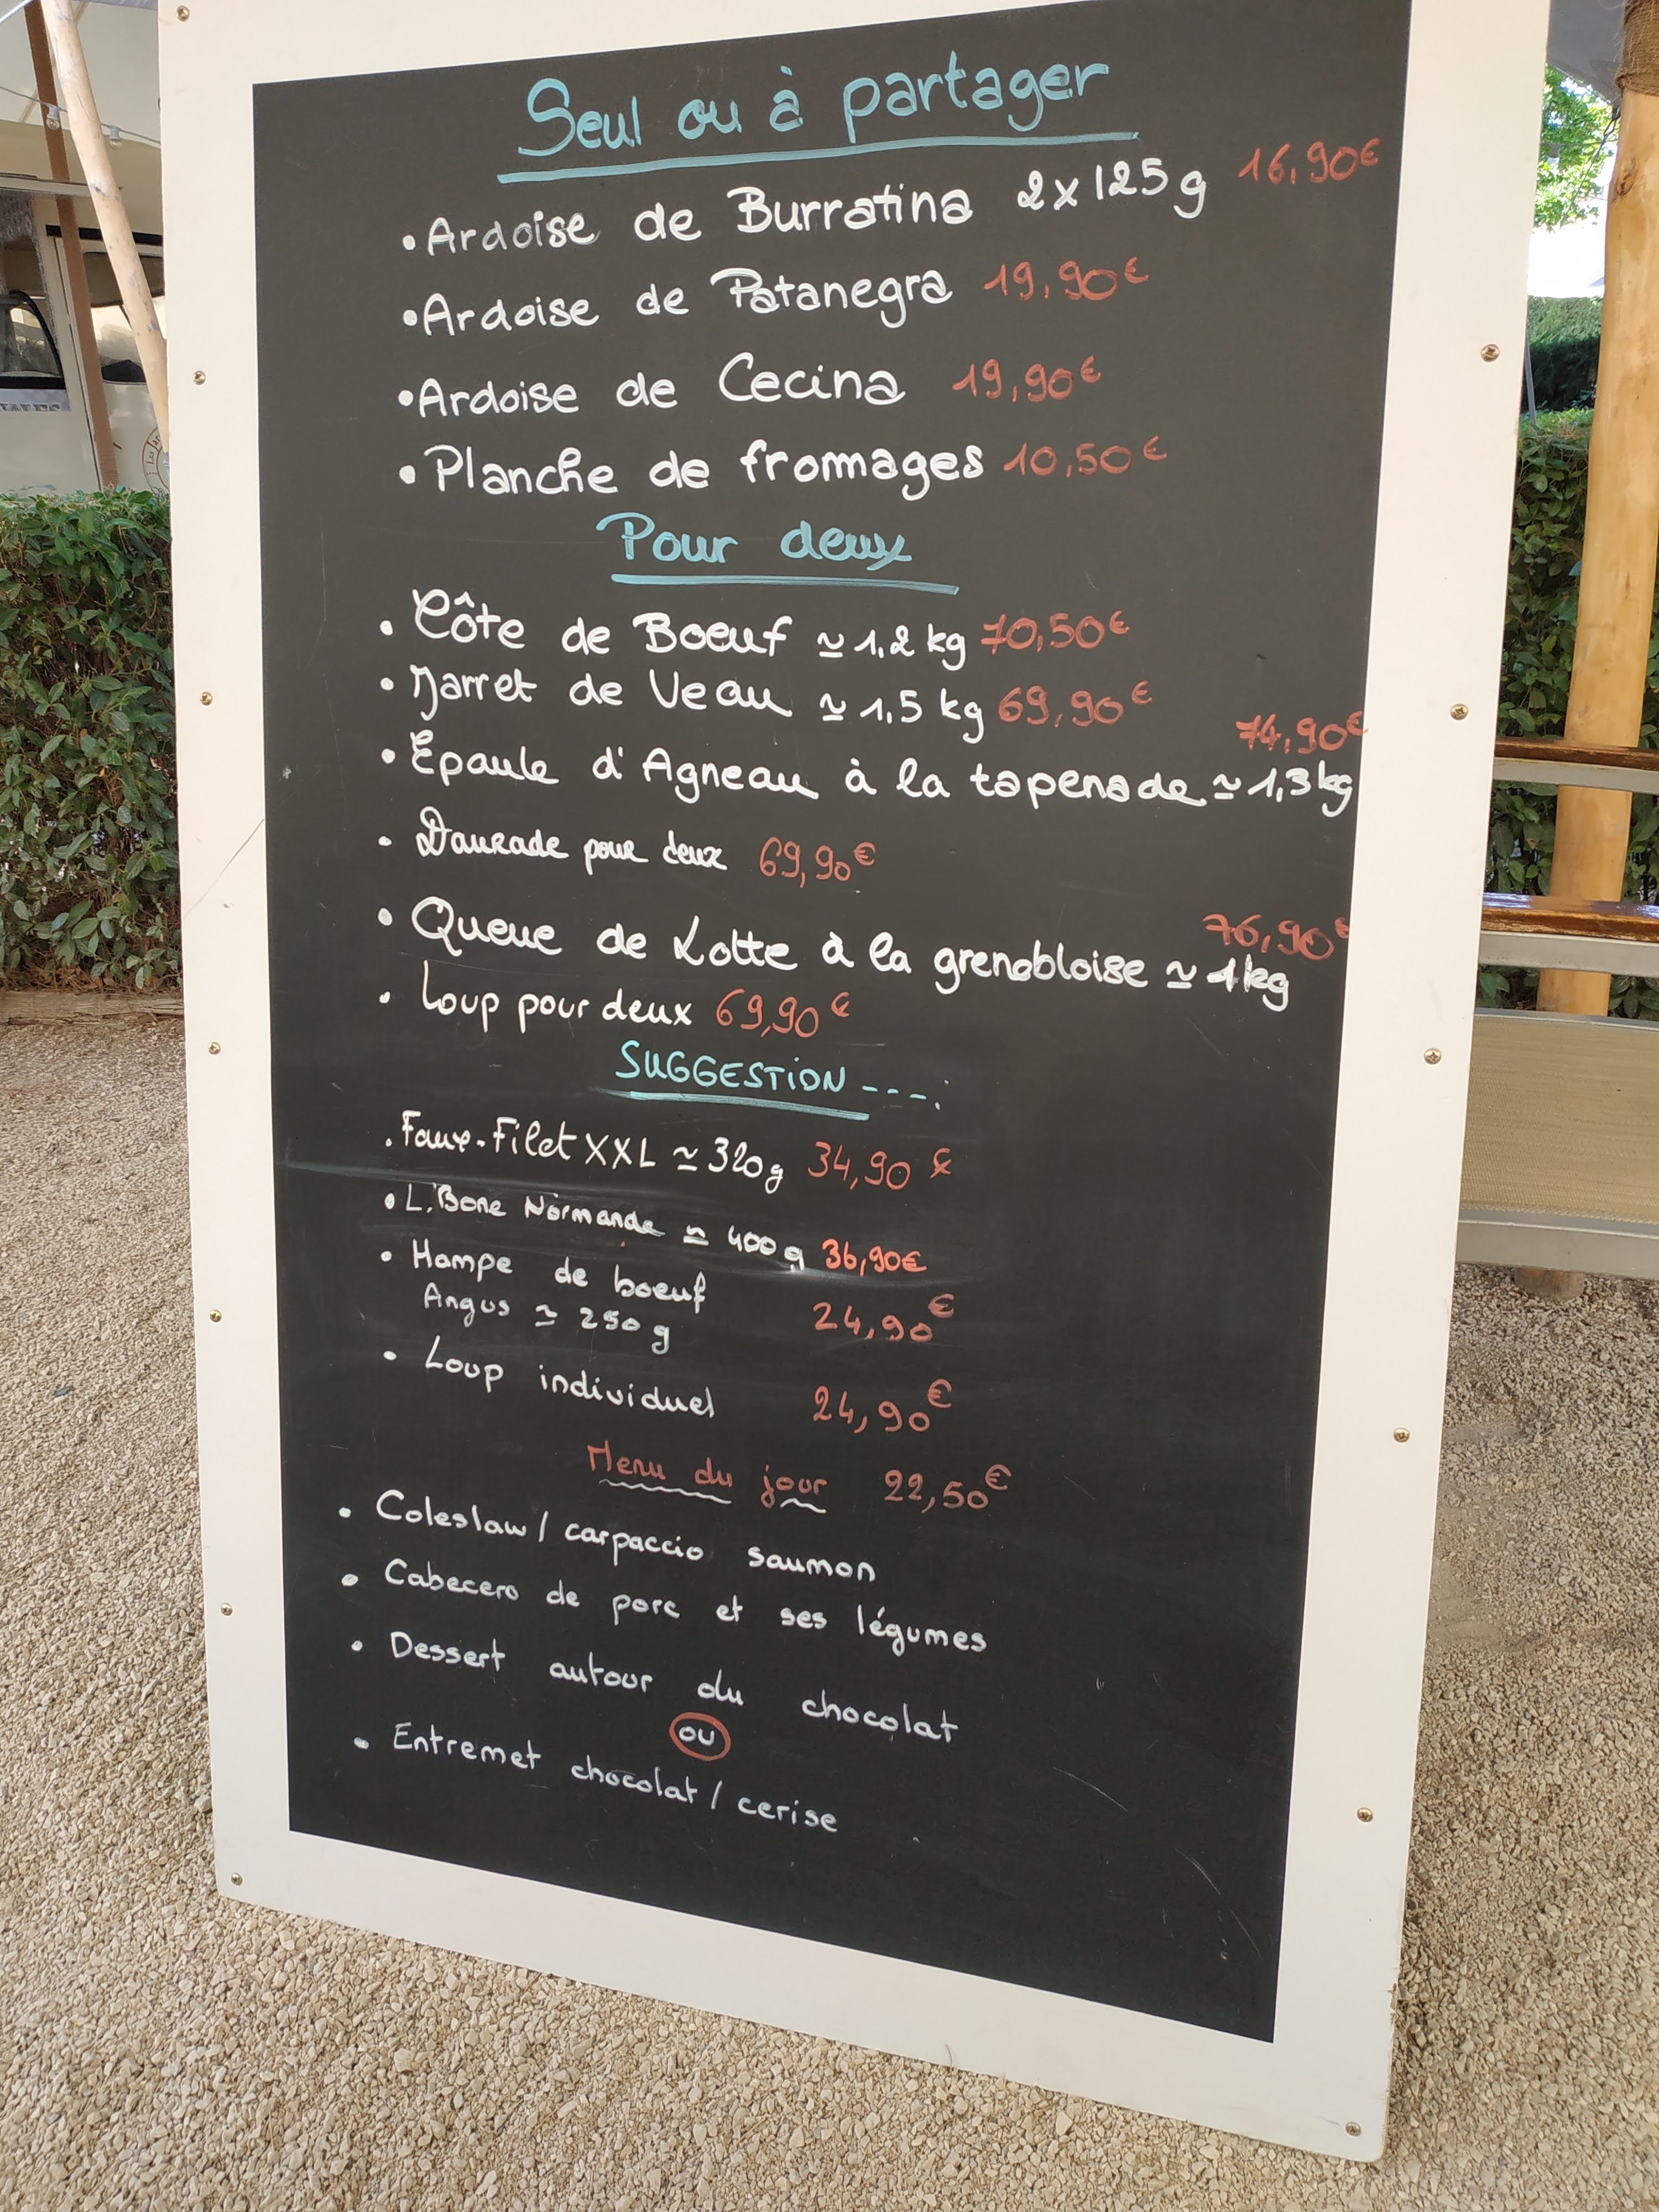 Seul ou à partager
• Ardoise de Burratina 2x125g 16,90€
• Ardoise de Patanegra 19,90€
• Ardoise de Cecina 19,90€
• Planche de fromages 10,50€
Pour deux
• Côte de Boeuf ≃ 1,2 kg 70,50€
• Jarret de Veau ≃ 1,5 kg 69,90€
74,90€
• Epaule d'Agneau à la tapenade ≃ 1,3 kg
• Daurade pour deux 69,90€
76,90€
• Queue de Lotte à la grenobloise ≃ 1kg
• Loup pour deux 69,90€
SUGGESTION ----.
. Faux-Filet XXL ≃ 320g 34,90 €
• L.Bone Normande ≃ 400g 36,90€
• Hampe de boeuf
Angus ≃ 250 g 24,90€
• Loup individuel 24,90€
Menu du jour 22,50€
• Coleslaw / carpaccio saumon
• Cabecero de porc et ses légumes
• Dessert autour du chocolat
ou
• Entremet chocolat / cerise